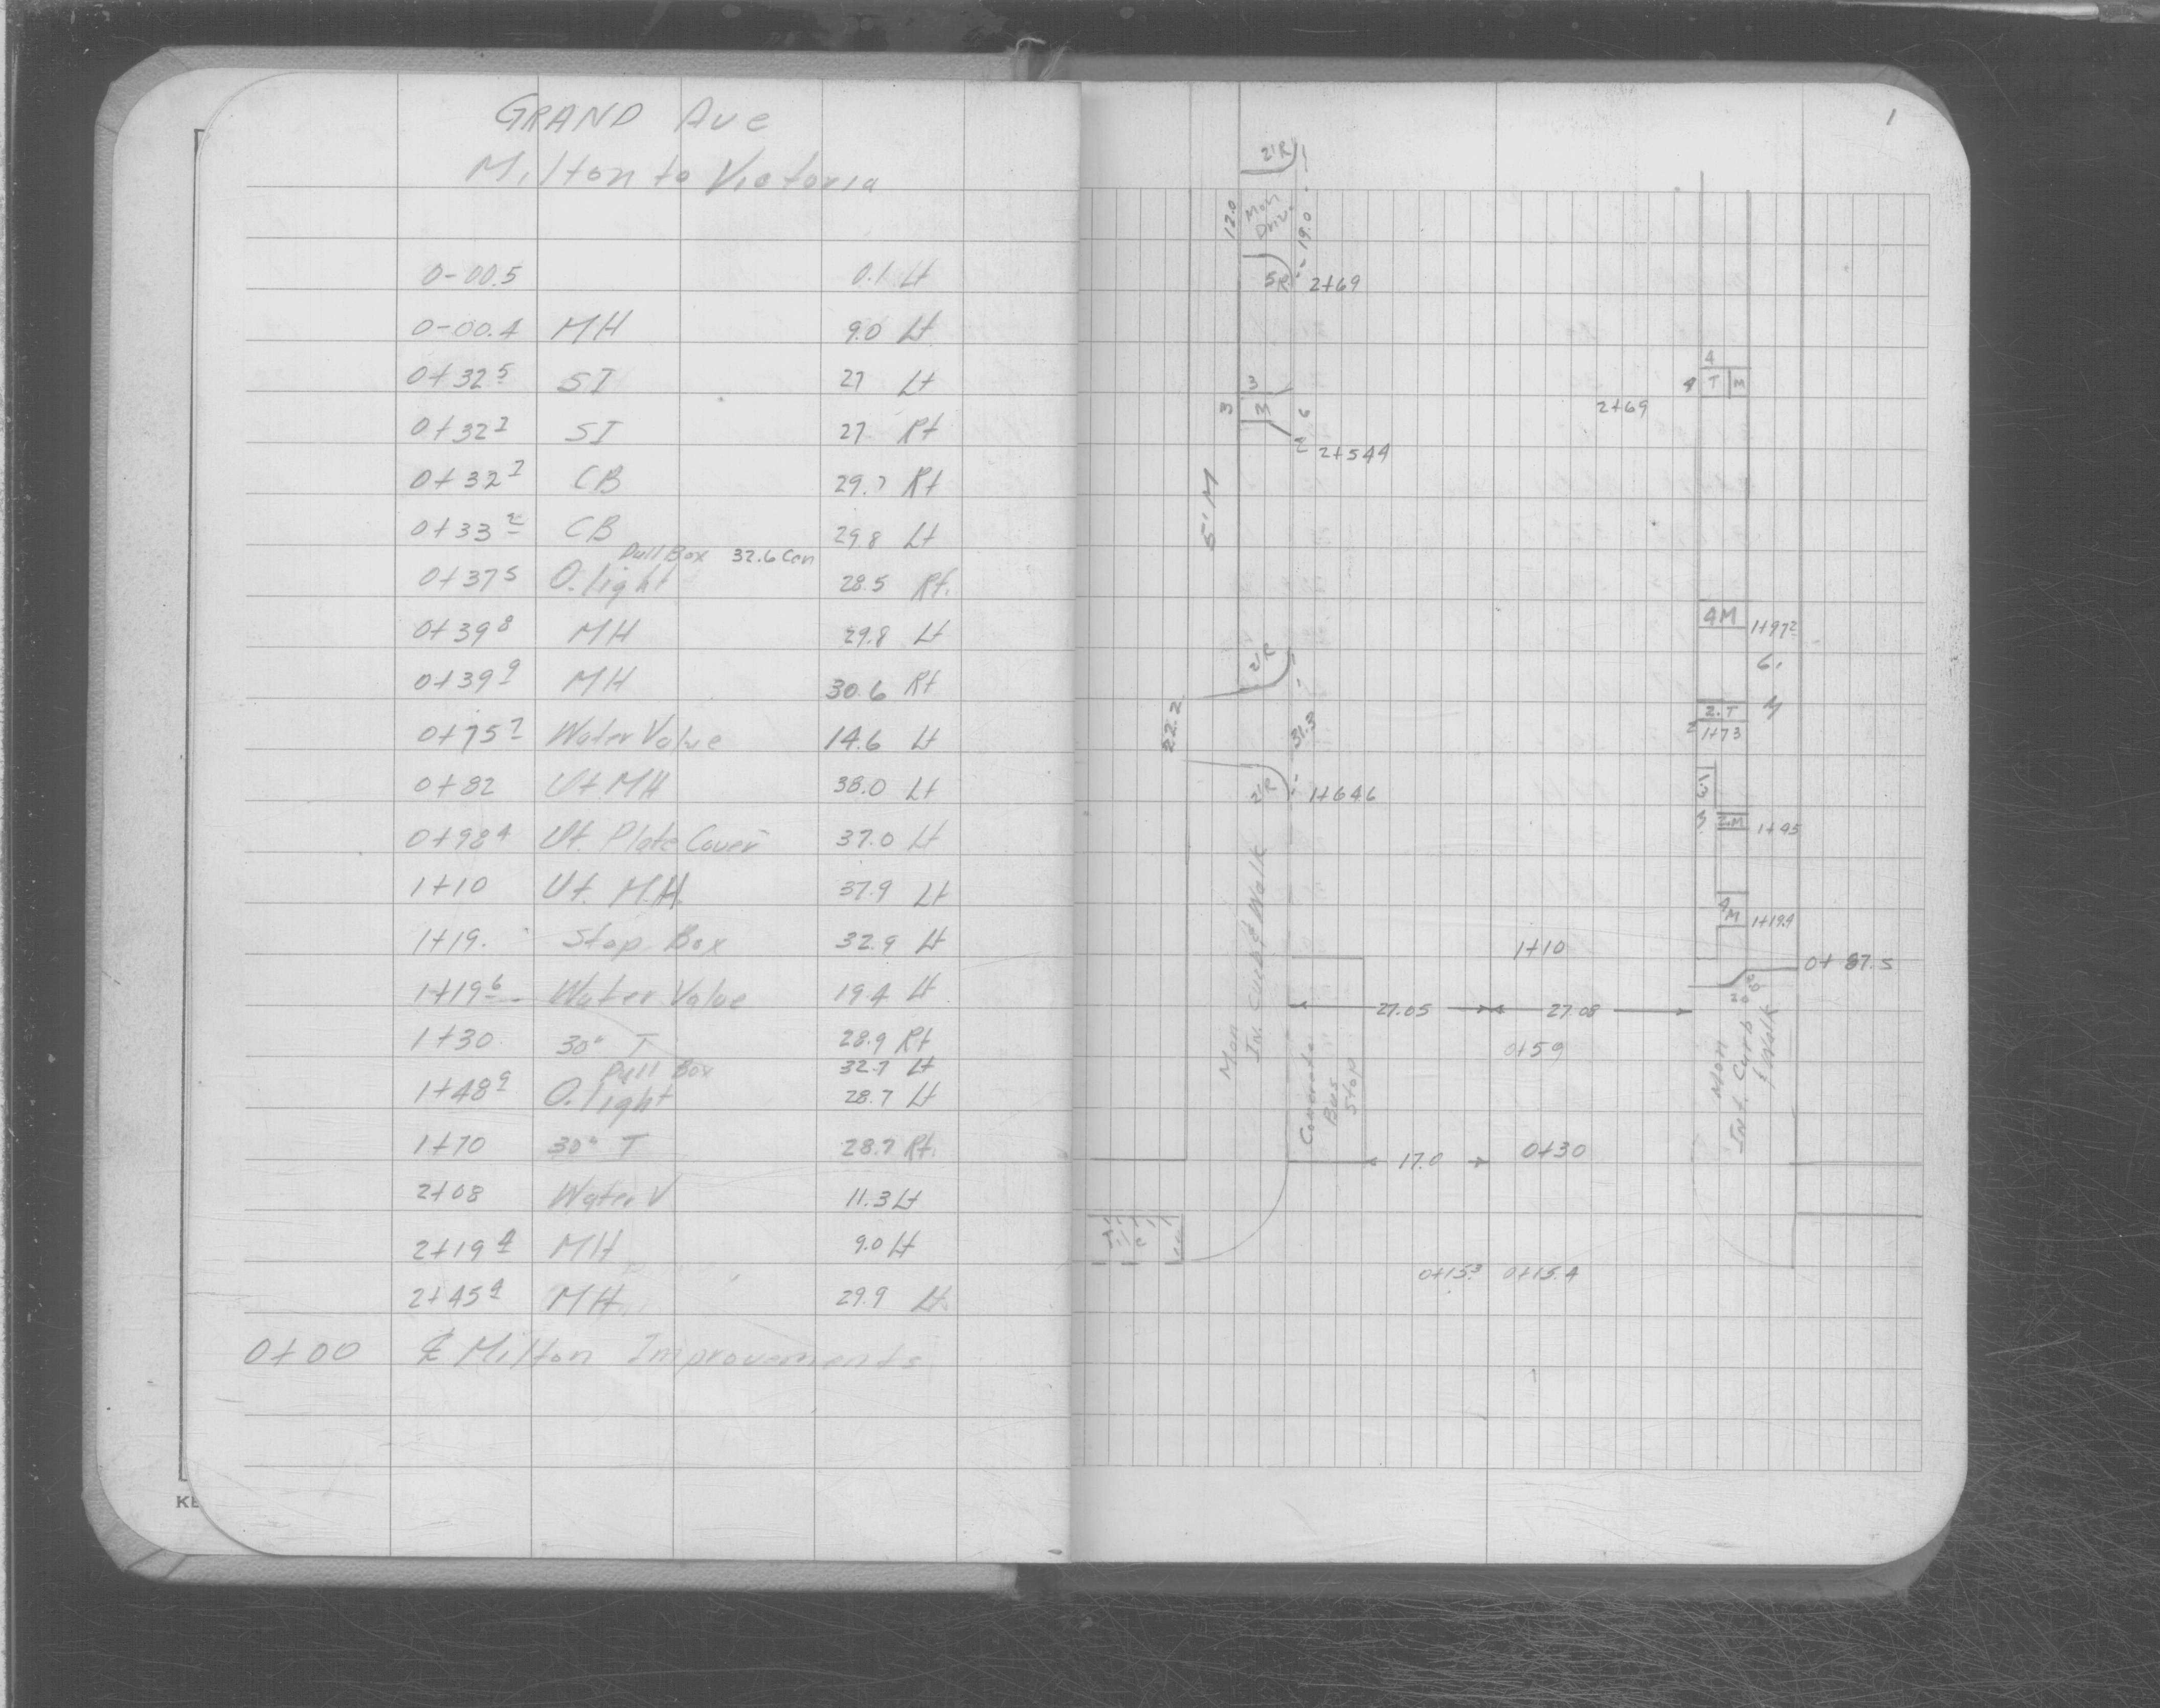 GRAND Ave
Milton to Victoria
0-00.5 0.1 Lt
0-00.4 MH 9.0 Lt
0+32 5 SI 27 Lt
0+32 7 SI 27 Rt
0+32 7 CB 29.7 Rt
0+33 2 CB 29.8 Lt
Pull Box 32.6 Cen
0+37 5 O. light 28.5 Rt.
0+39 8 MH 29.8 Lt
0+39 9 MH 30.6 Rt
0+75 7 Water Valve 14.6 Lt
0+82 Ut MH 38.0 Lt
0+98 4 Ut. Plate Cover 37.0 Lt
1+10 Ut. M.H. 37.9 Lt
1+19. Stop Box 32.9 Lt
1+19 6 Water Valve 19.4 Lt
1+30 30" T 28.9 Rt
Pull Box 32.7 Lt
1+48 9 O. light 28.7 Lt
1+70 30" T 28.7 Rt.
2+08 Water V 11.3 Lt
2+19 4 MH 9.0 Lt
2+45 4 MH 29.9 Lt
0+00 ℄ Milton Improvements
1
2'R
12.0
Mon Driv.
19.0
5R
2+69
4
4 T M
2+69
3
3
3
6
2
2+544
5' M
4M 1+97 2
6.
2'R
22.2
2.T
1+73
31.3
2'R
1+64.6
2.M 1+45
4 M 1+19.4
1+10
0+87.5
27.05 27.08
0+59
Mon
Int. Curb & Walk
Concrete
Bus
Stop
Mon
Int. Curb
& Walk
17.0
0+30
Tile
0+15.3 0+15.4
KE